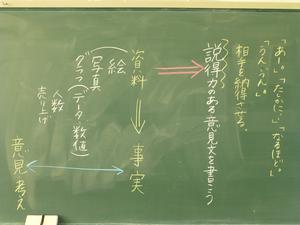 「あー。」「たしかに。」「なるほど。」
「うんうん。」
相手を納得させる。
説得力のある意見文を書こう
資料
絵
写真
グラフ(データ・数値)
人数
売り上げ
事実
意見 考え